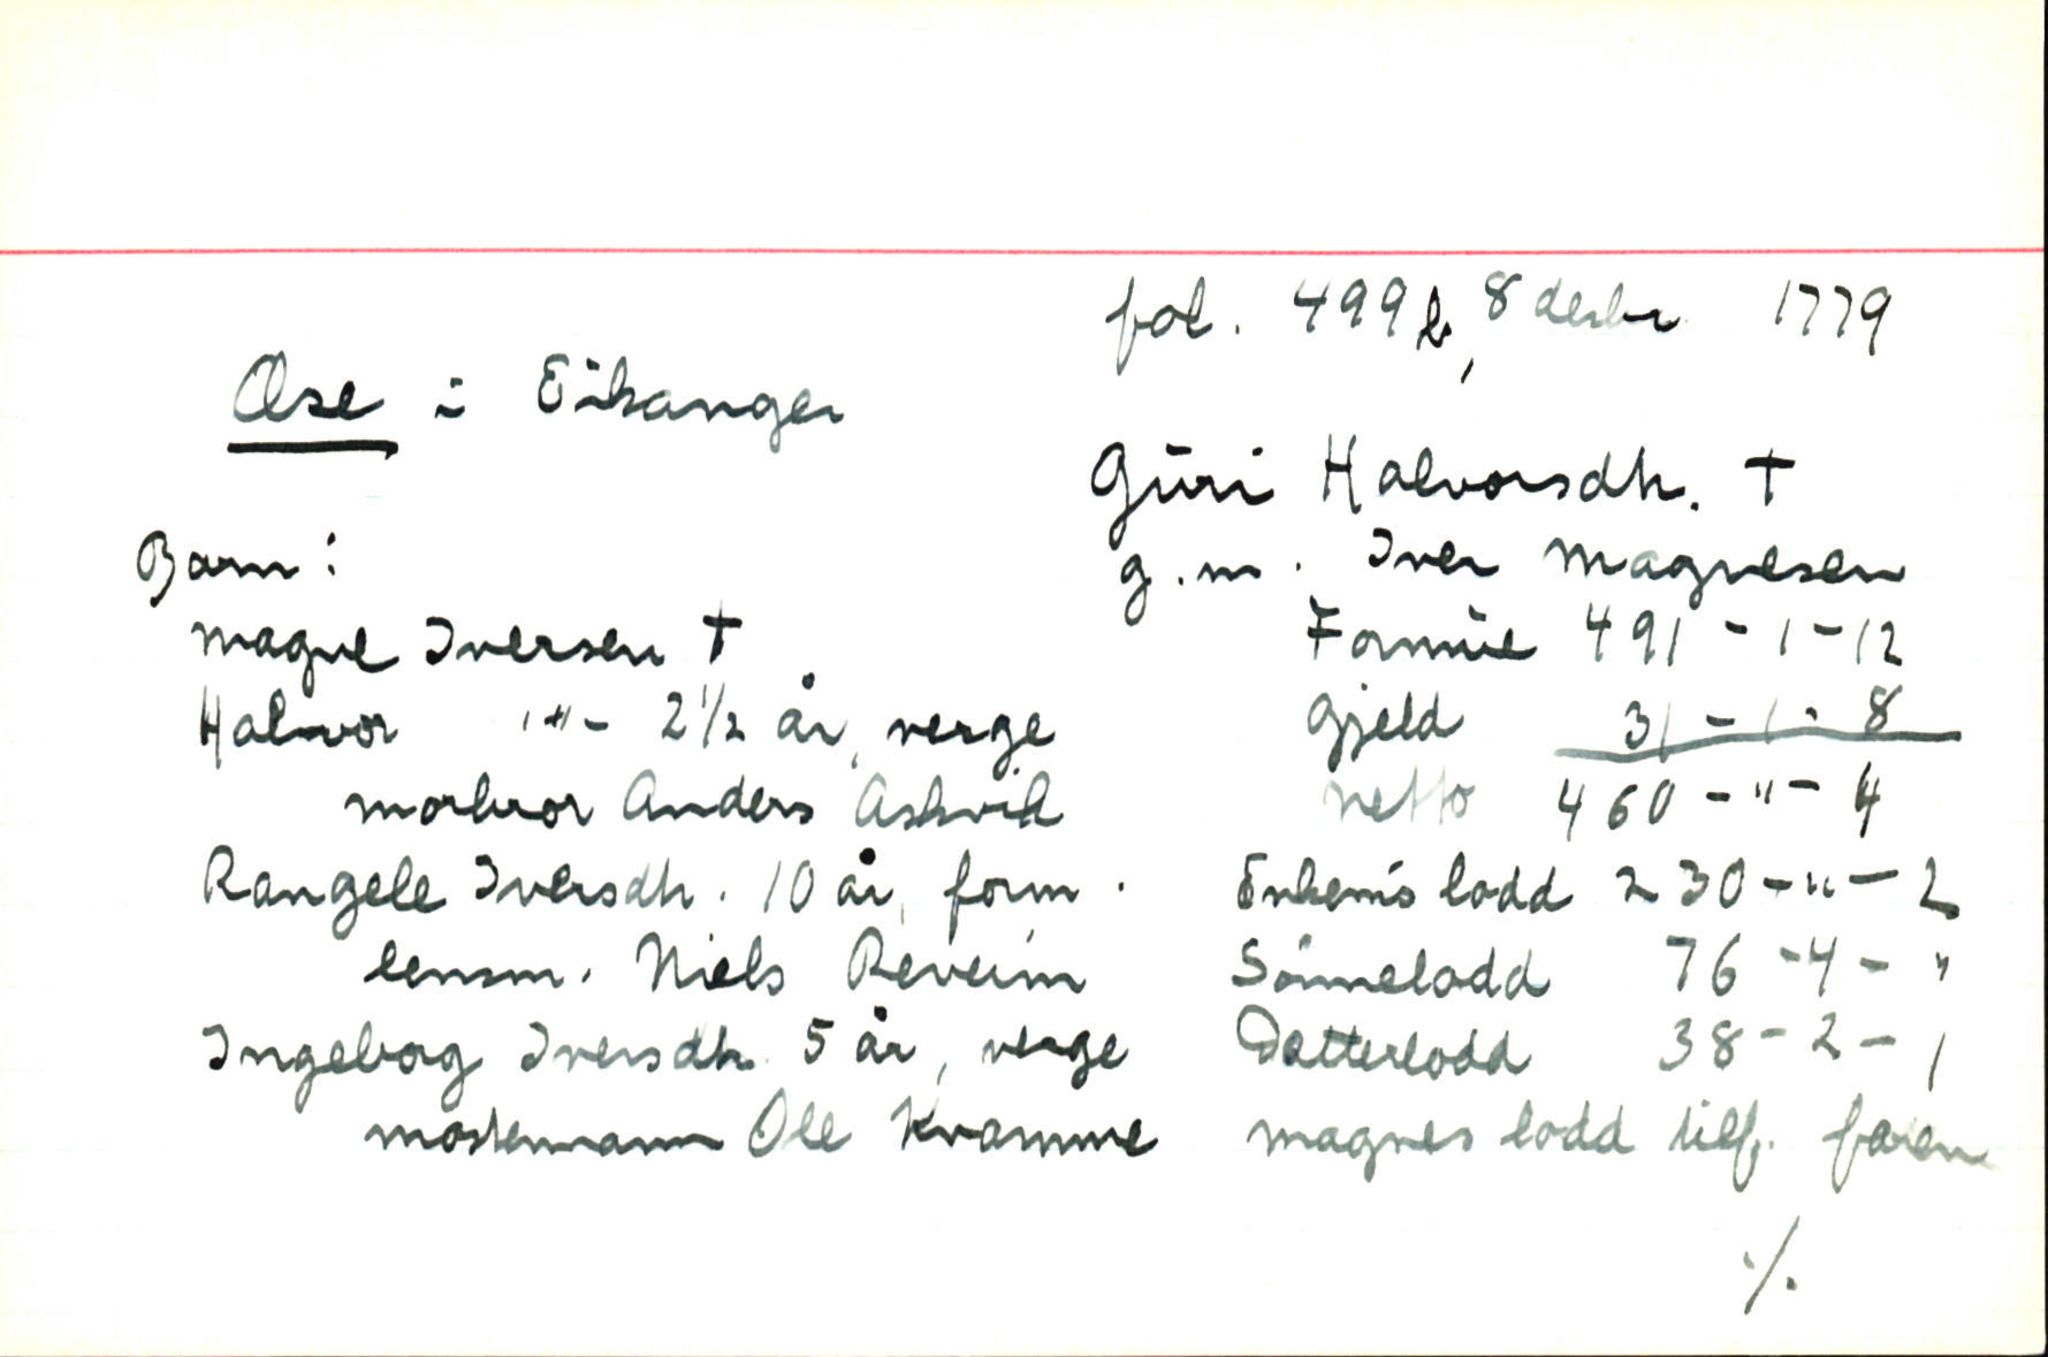 fol. 499b, 8 desbr 1779
Øse i Eikanger
Guri Halvorsdtr. †
g.m. Iver Magnesen
Barn:
Magne Iversen †
Halvor -"- 2 1/2 år, verge
morbror Anders Askvik
Rangele Iversdtr. 10 år, form.
lensm. Niels Reveim
Ingeborg Iversdtr. 5 år, verge
mostermann Ole Kvamme
Formue 491 - 1 - 12
Gjeld 31 - 1 - 8
Netto 460 - " - 4
Enkem's lodd 230 - " - 2
Sønnelodd 76 - 4 - "
Datterlodd 38 - 2 - 1
Magnes lodd tilf. faren
./.